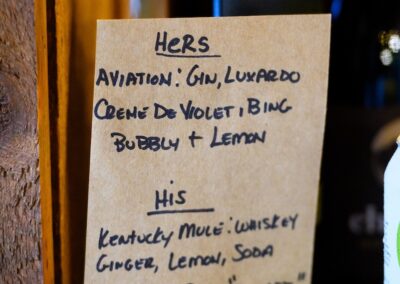 HERS
AVIATION: GIN, LUXARDO
CREME DE VIOLET, BING
BUBBLY + LEMON
HIS
KENTUCKY MULE: WHISKEY
GINGER, LEMON, SODA